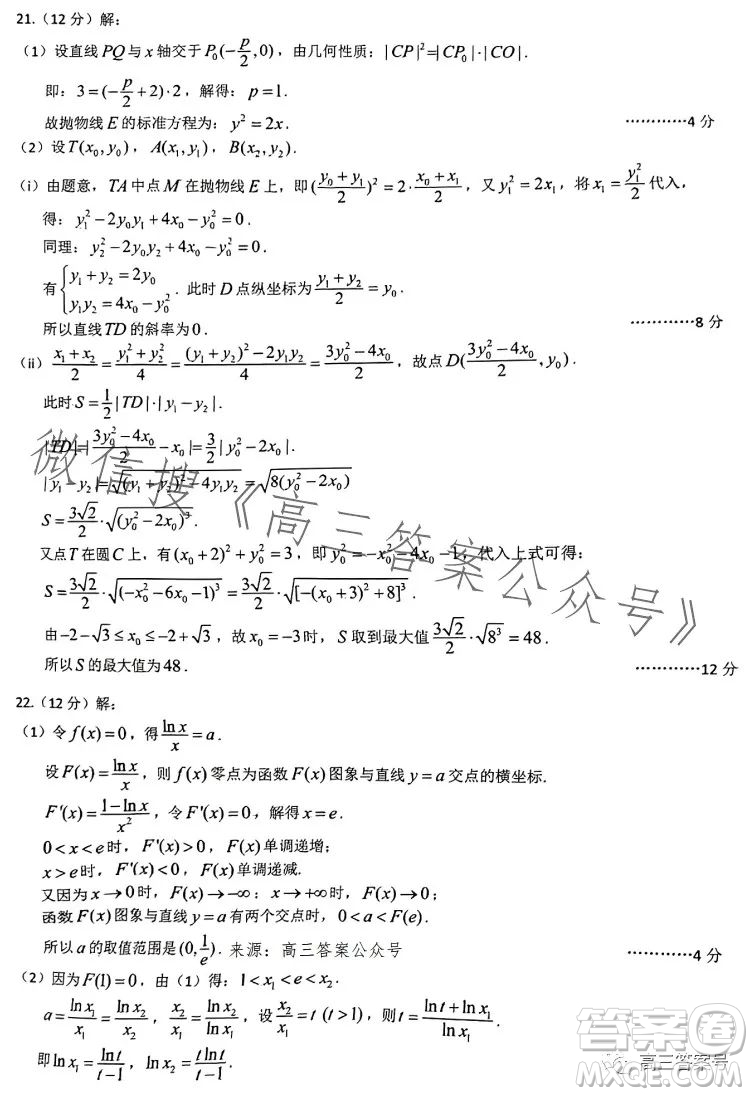 21.（12 分）解：
（1）设直线 PQ 与 x 轴交于 P₀(-p/2, 0)，由几何性质：|CP|²=|CP₀|·|CO|.
即：3=(-p/2+2)·2，解得：p=1.
故抛物线 E 的标准方程为：y²=2x. …………4 分
（2）设 T(x₀,y₀)，A(x₁,y₁)，B(x₂,y₂).
（i）由题意，TA 中点 M 在抛物线 E 上，即((y₀+y₁)/2)²=2·(x₀+x₁)/2，又 y₁²=2x₁，将 x₁=y₁²/2 代入，
得：y₁²-2y₀y₁+4x₀-y₀²=0.
同理：y₂²-2y₀y₂+4x₀-y₀²=0.
有{y₁+y₂=2y₀
y₁y₂=4x₀-y₀². 此时 D 点纵坐标为(y₁+y₂)/2=y₀.
所以直线 TD 的斜率为 0. …………8 分
（ii）(x₁+x₂)/2=(y₁²+y₂²)/4=((y₁+y₂)²-2y₁y₂)/4=(3y₀²-4x₀)/2，故点 D((3y₀²-4x₀)/2, y₀).
此时 S=1/2|TD|·|y₁-y₂|.
|TD|=|(3y₀²-4x₀)/2-x₀|=3/2|y₀²-2x₀|.
|y₁-y₂|=√((y₁+y₂)²-4y₁y₂)=√(8(y₀²-2x₀))
S=3√2/2·√((y₀²-2x₀)³).
又点 T 在圆 C 上，有(x₀+2)²+y₀²=3，即 y₀²=-x₀²-4x₀-1，代入上式可得：
S=3√2/2·√((-x₀²-6x₀-1)³)=3√2/2·√([-(x₀+3)²+8]³).
由-2-√3≤x₀≤-2+√3，故 x₀=-3 时，S 取到最大值 3√2/2·√(8³)=48.
所以 S 的最大值为 48. …………12 分
22.（12 分）解：
（1）令 f(x)=0，得 lnx/x=a.
设 F(x)=lnx/x，则 f(x) 零点为函数 F(x) 图象与直线 y=a 交点的横坐标.
F'(x)=(1-lnx)/x²，令 F'(x)=0，解得 x=e.
0<x<e 时，F'(x)>0，F(x) 单调递增；
x>e 时，F'(x)<0，F(x) 单调递减.
又因为 x→0 时，F(x)→-∞；x→+∞时，F(x)→0；
函数 F(x) 图象与直线 y=a 有两个交点时，0<a<F(e).
所以 a 的取值范围是(0,1/e). 来源：高三答案公众号 …………4 分
（2）因为 F(1)=0，由（1）得：1<x₁<e<x₂.
a=lnx₁/x₁=lnx₂/x₂，设 x₂/x₁=t (t>1)，则 t=(lnt+lnx₁)/lnx₁.
即 lnx₁=lnt/(t-1)，lnx₂=tlnt/(t-1).
微信搜《高三答案公众号》
答案卷
高三答案号